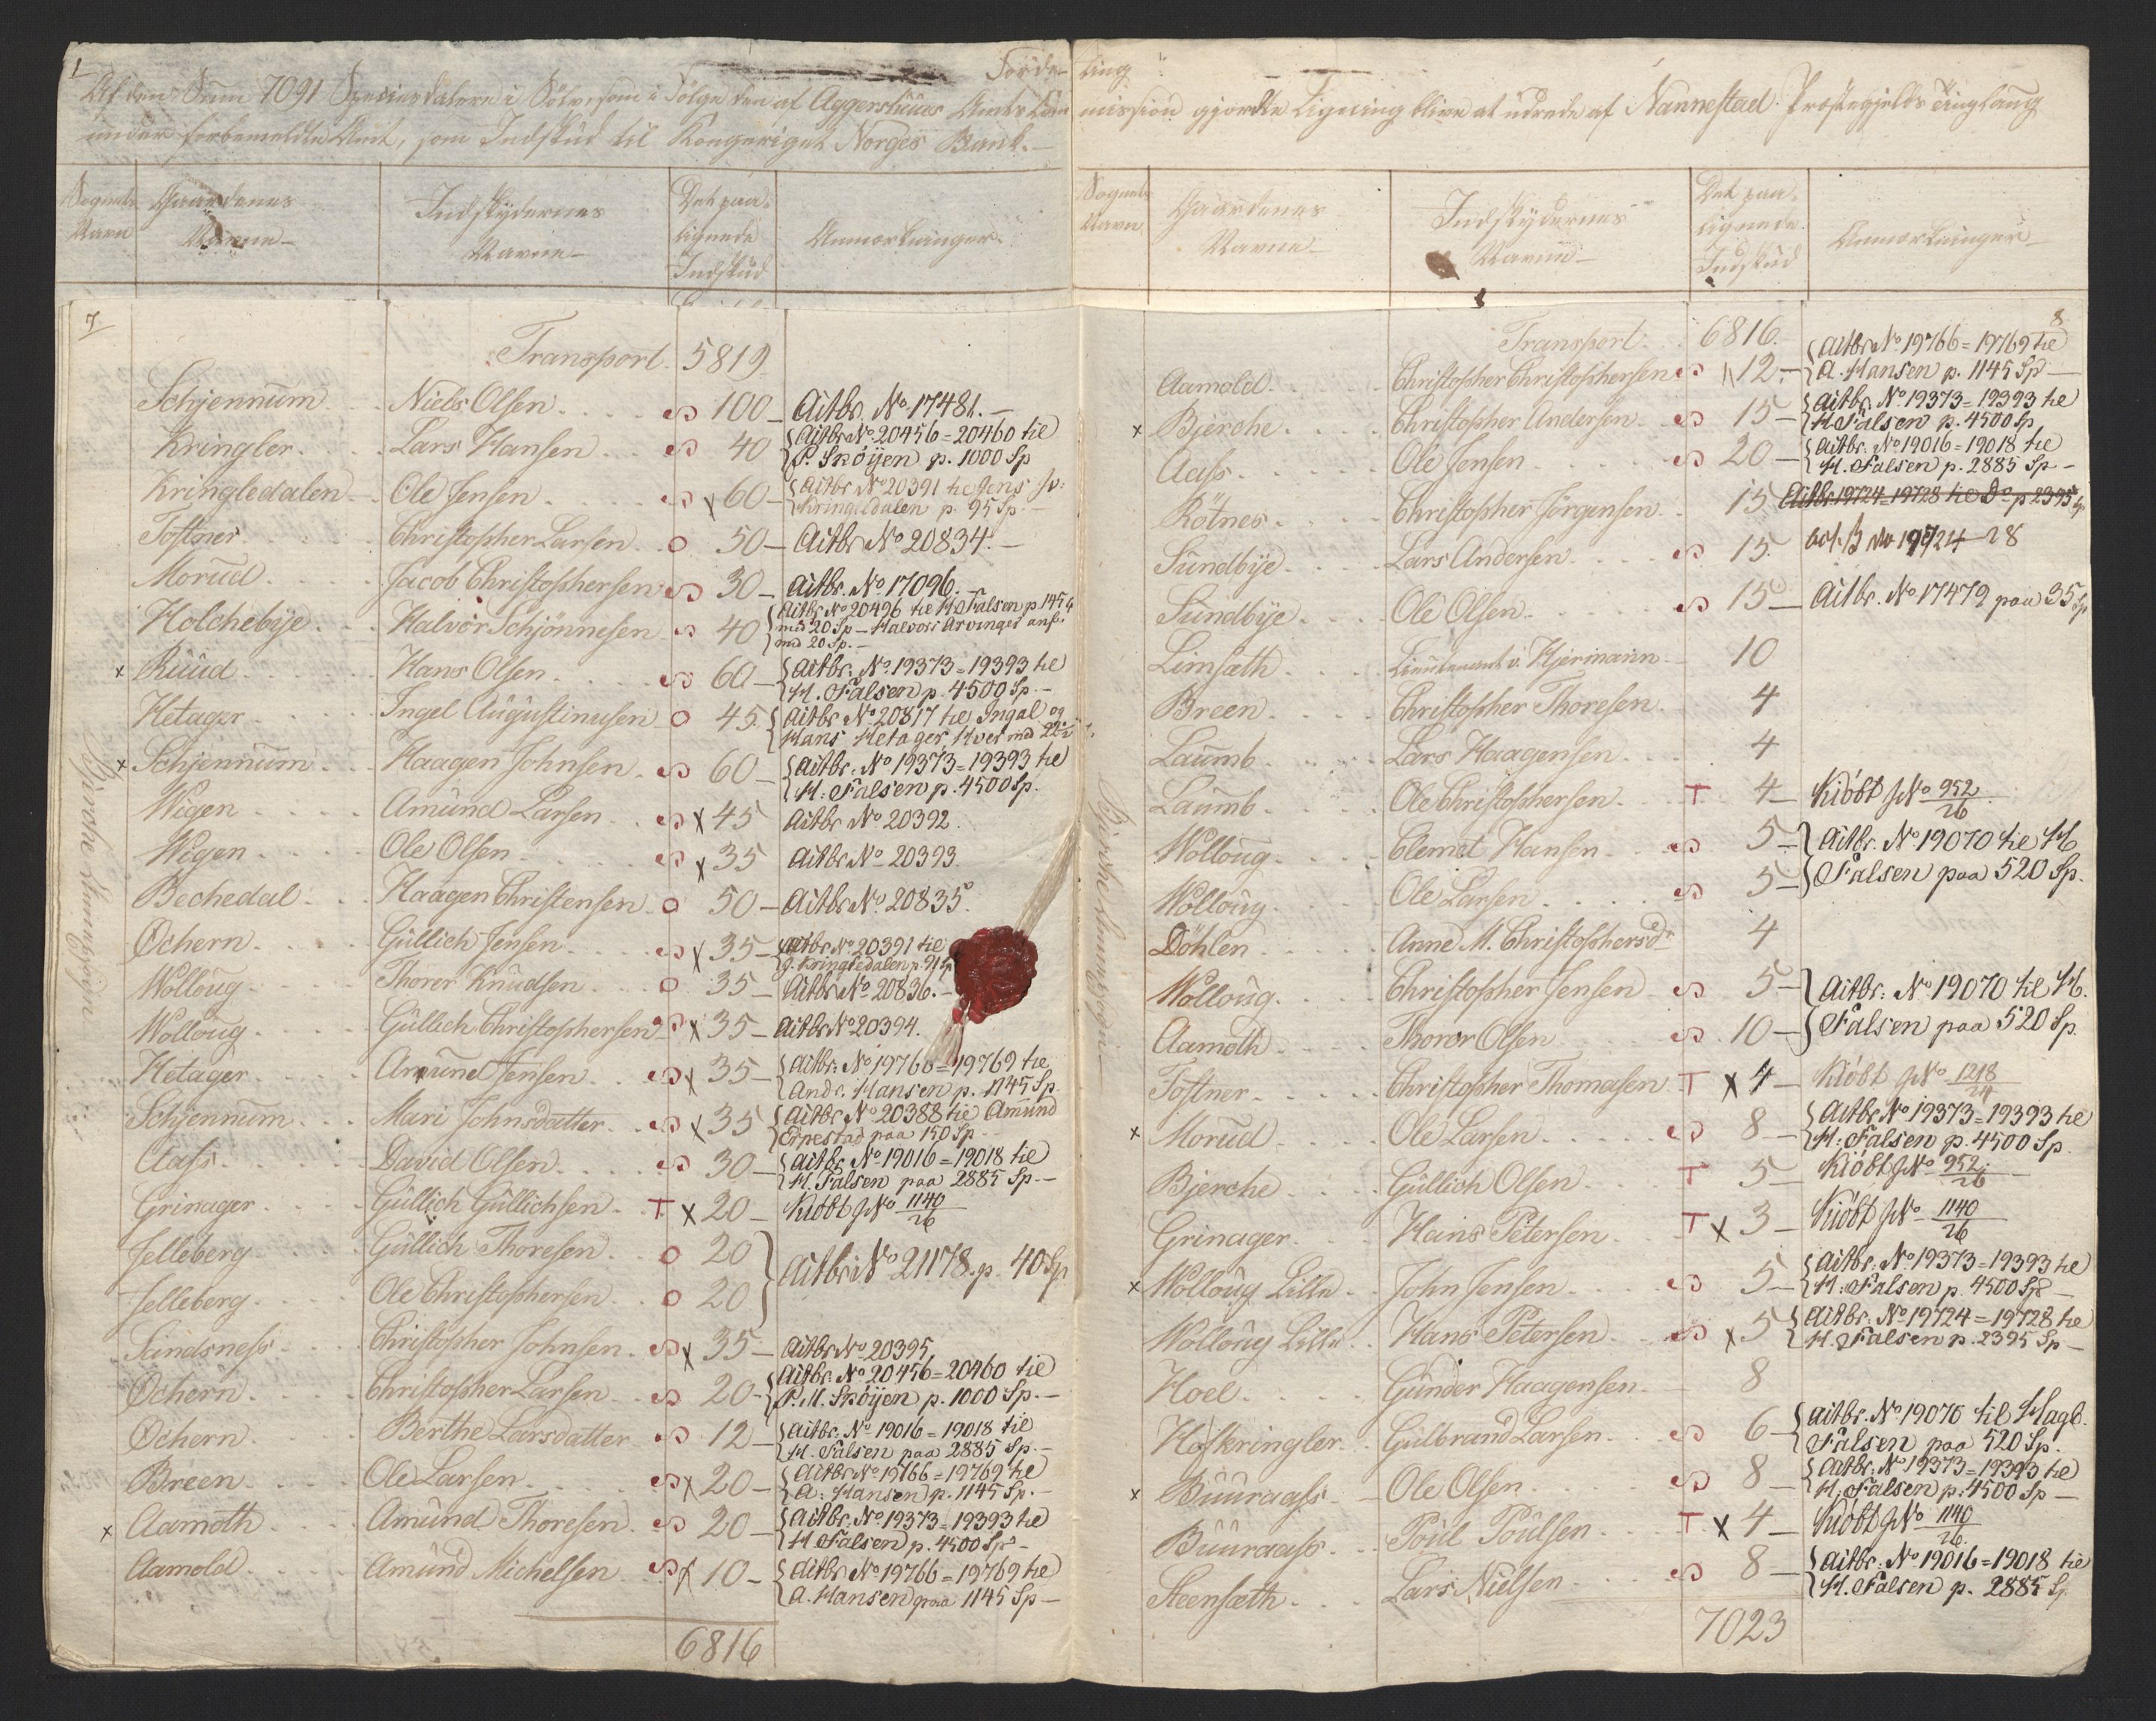 1
Förde-
Af den Sum 7091 Speciesdalere i Sölv, som i Fölge den af Aggershuus Amts Com
under forbemeldte Amt, som Indskud til Kongeriget Norges Bank.
Sognets Navn
Gaardenes Navne
Indskydernes Navne
Det paa-lignede Indskud
Anmærkninger.
7
Bjerche Annexsogn
Transport. 5819
Schjennum Niels Olsen 100 Aitbr. No 17481.
Kringler Lars Hansen 40 Aitbr No 20456=20460 til
P. Skøijen p. 1000 Sp
Kringledalen Ole Jensen x 60 Aitbr No 20391 til Jens
Kringledalen p. 95 Sp.
Tostner Christopher Larsen O 50 Aitbr No 20834.
Morud Jacob Christophersen 30 Aitbr. No 17096.
Holchebÿe Halvor Schjönnesen 40 Aitbr No 20496 til H Falsen p 145
med 20 Sp - Halvors Arvinger anf.
med 20 Sp.
x Ruud Hans Olsen 60 Aitbr. No 19373=19393 til
H. Falsen p. 4500 Sp.
Hetager Ingel Augustinusen O 45. Aitbr No 20817 til Ingal og
Hans Hetager, Hver med 22½
x Schjennum Haagen Johnsen 60 Aitbr. No 19373=19393 til
H. Falsen p. 4500 Sp.
Wigen Amund Larsen x 45 Aitbr No 20392.
Wigen Ole Olsen x 35 Aitbr No 20393.
Bechedal Haagen Christensen O 50 Aitbr No. 20835.
Ochern Güllich Jensen x 35 Aitbr No 20391 til
J. Kringledalen p. 95 Sp
Wolloug Thorer Knudsen O 35 Aitbr No 20836.
Wolloug Güllich Christophersen x 35 Aitbr No 20394.
Hetager Amund Jensen x 35 Aitbr. No 19766=19769 til
Andr. Hansen p. 1145 Sp
Schjennum Mari Johnsdatter x 35 Aitbr No 20388 til Amund
Erpestad paa 150 Sp
Aass David Olsen 30 Aitbr No 19016=19018 til
H. Falsen paa 2885 Sp.
Grinager Güllich Güllichsen T x 20 Kiöbt No 1140/26
Jelleberg Güllich Thoresen O 20
Aitbr. No 21178. p. 40 Sp
Jelleberg Ole Christophersen O 20
Sandsness Christopher Johnsen x 35 Aitbr No 20395
Ochern Christopher Larsen 20 Aitbr. No 20456=20460 til
P. M. Skøijen p. 1000 Sp.
Ochern Berthe Larsdatter 12 Aitbr. No 19016=19018 til
H. Falsen paa 2885 Sp.
Breen Ole Larsen x 20 Aitbr No 19766=19769 til
A. Hansen p. 1145 Sp.
x Aamoth Amund Thoresen 20 Aitbr. No 19373=19393 til
H Falsen p. 4500 Sp
Aamold Amund Michelsen x 10 Aitbr No 19766=19769 til
A. Hansen paa 1145 Sp
6816
ling
mission gjordte Ligning blive at udrede af Nannestad Præstegjelds Tinglaug
Sognets Navn
Gaardenes Navne
Indskydernes Navne
Det paa-lignede Indskud
Anmærkninger
8
Bjerche Annexsogn
Transport. 6816.
Aamold Christopher Christophersen 12 Aitbr No 19766=19769 til
A. Hansen p. 1145 Sp
x Bjerche Christopher Andersen 15 Aitbr. No 19373=19393 til
H. Falsen p. 4500 Sp
Aass Ole Jensen 20 Aitbr. No 19016=19018 til
H. Falsen p. 2885 Sp
Rötnes Christopher Jörgensen 15 Aitbr 19724=19728 til Do p 2395 Sp
Sundbÿe Lars Andersen 15. No 19724-28
Sundbÿe Ole Olsen 15 Aitbr. No 17479 paa 35 Sp
Limsæth Lieutenant v. Hjermann 10
Breen Christopher Thoresen 4
Laumb Lars Haagensen 4
Laumb Ole Christophersen T 4 Kiöbt No 952/26
Wolloug Clemet Hansen 5 Aitbr. No 19070 til H
Wolloug Ole Larsen 5 Falsen paa 520 Sp.
Döhlen Anne M. Christophersdr 4
Wolloug Christopher Jensen 5 Aitbr: No 19070 til H.
Aamoth Thoror Olsen 10 Falsen paa 520 Sp.
Tostner Christopher Thomasen T x 4 Kiöbt No 1218/24
x Morud Ole Larsen 8 Aitbr No 19373=19393 til
H. Falsen p. 4500 Sp
Bjerche Güllich Olsen T 5 Kiöbt No 952/26
Grinager Hans Petersen T x 3 Kiöbt No 1140/26
x Wolloug Lille John Jensen 5 Aitbr. No 19373=19393 til
H. Falsen p. 4500 Sp
Wolloug Lille Hans Petersen x 5 Aitbr. No 19724=19728 til
H. Falsen p. 2395 Sp
Hoel Gunder Haagensen 8
Hofkringler Gulbrand Larsen 6 Aitbr. No 19070 til Hagb.
Falsen paa 520 Sp.
x Buuraass Ole Olsen 8 Aitbr. No 19373=19393 til
H. Falsen p. 4500 Sp
Buuraass Poul Poulsen T x 4 Kiöbt No 1140/26.
Steensæth Lars Nielsen 8 Aitbr. No 19016=19018 til
H. Falsen p. 2885 Sp
7023